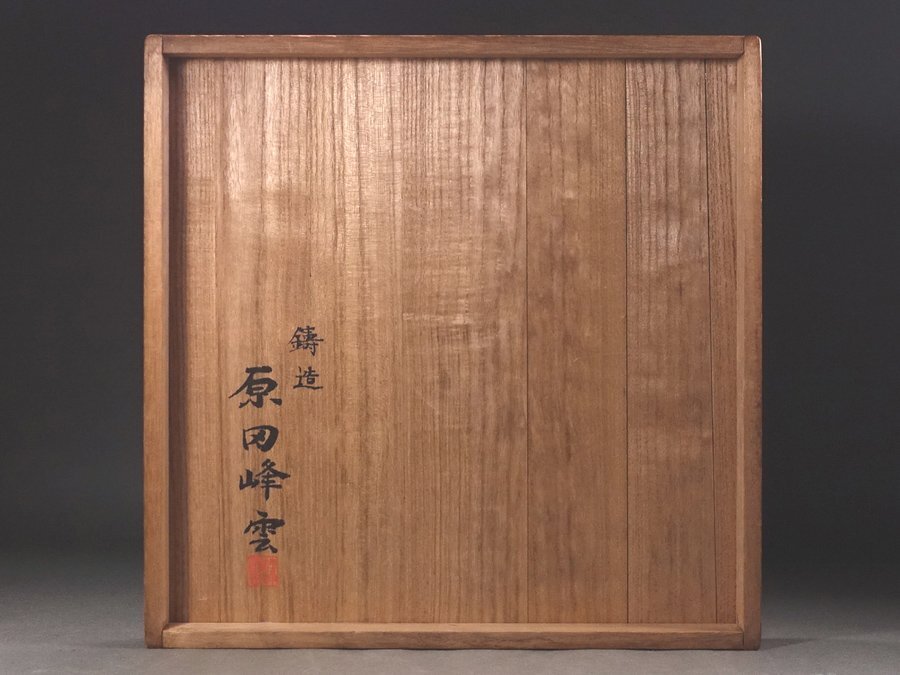 鋳造
原田峰雲